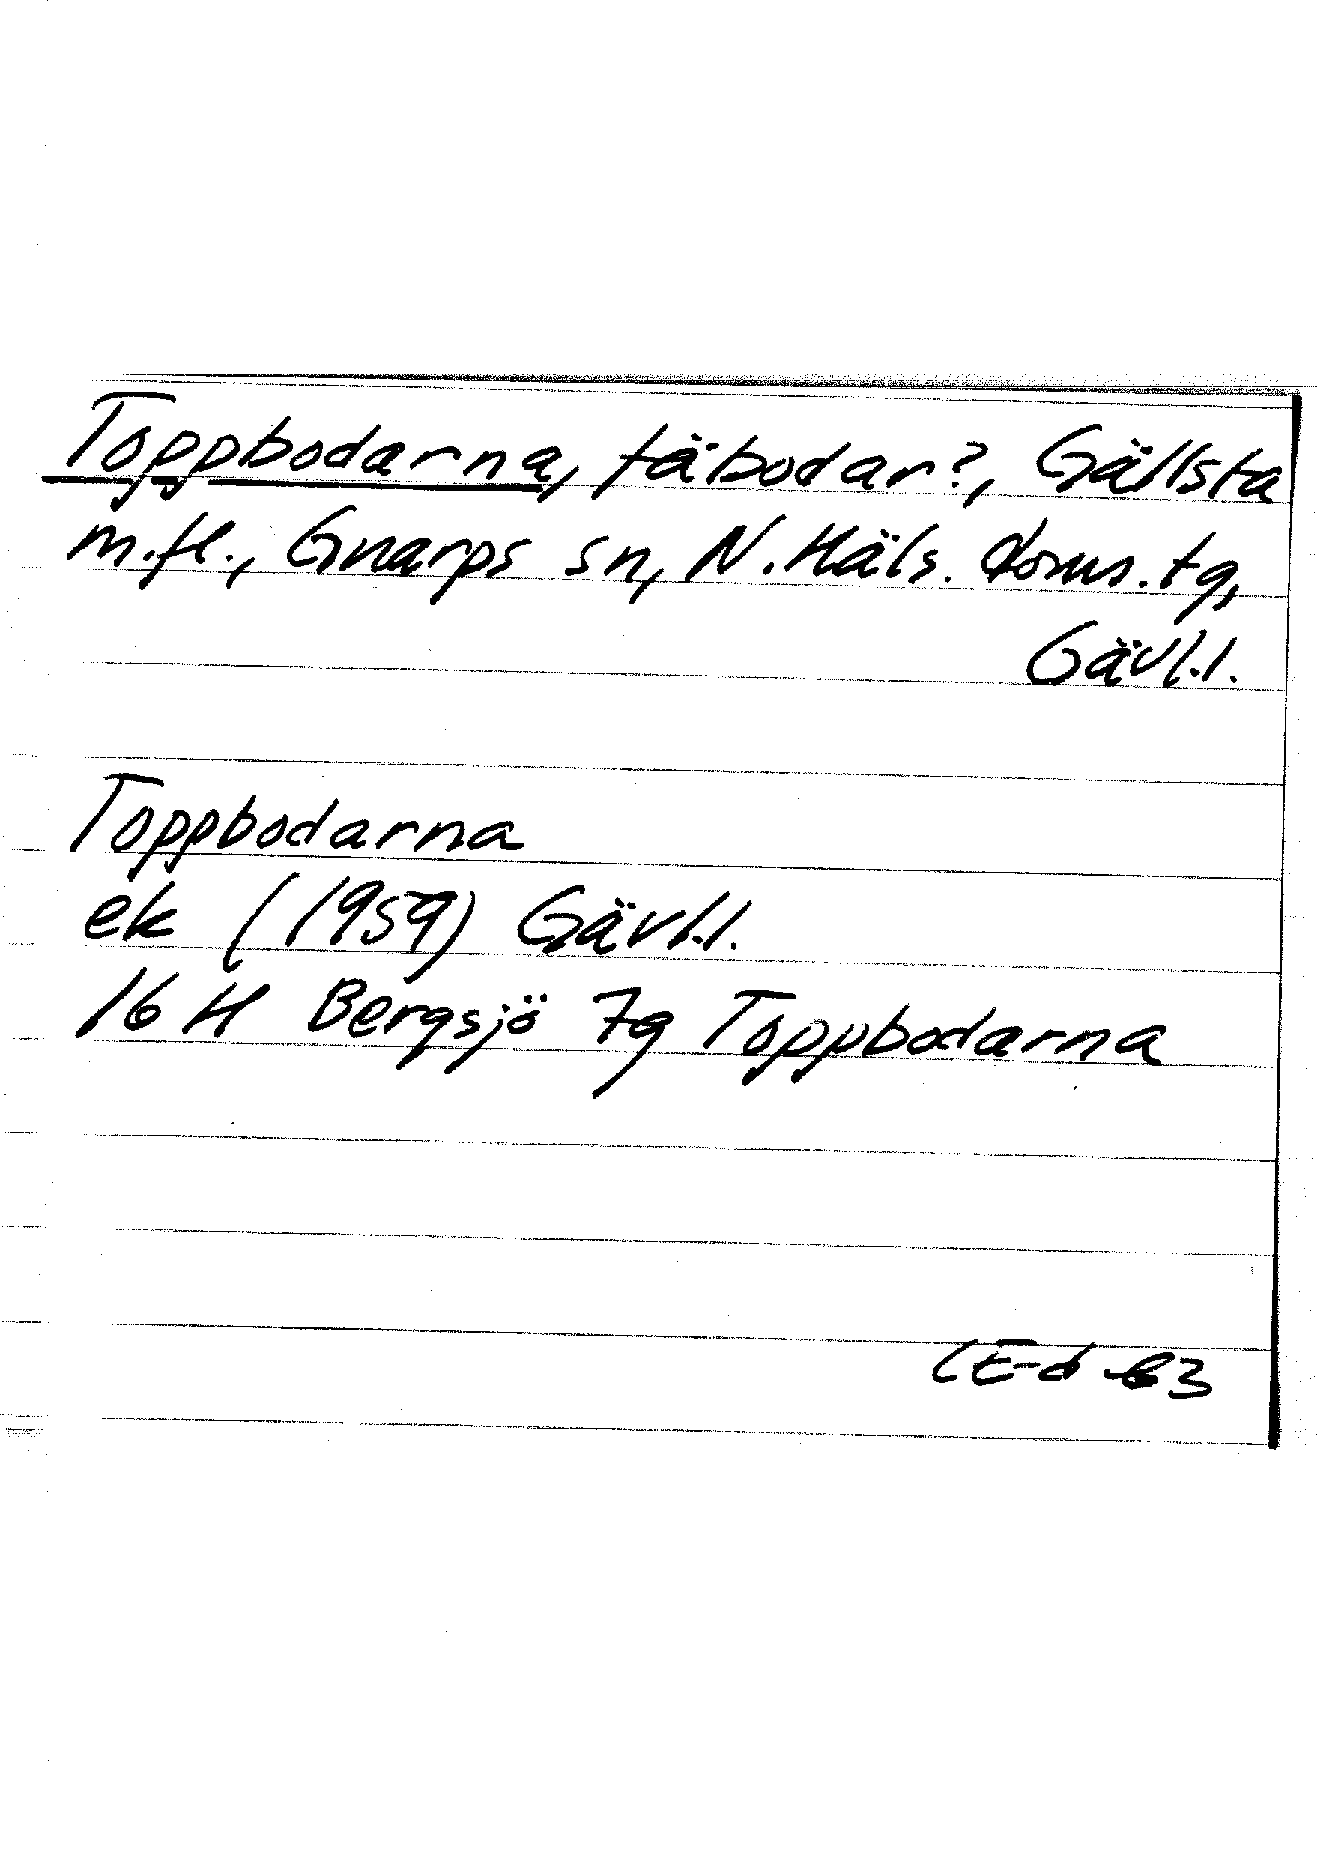 Toppbodarna, fäbodar?, Gällsta
m.fl., Gnarps sn, N. Häls. doms. tg,
Gävl.l.
Toppbodarna
ek (1959) Gävl.l.
16 H Bergsjö 7g Toppbodarna